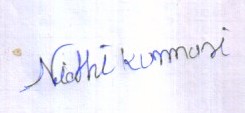 Nidhi kumari